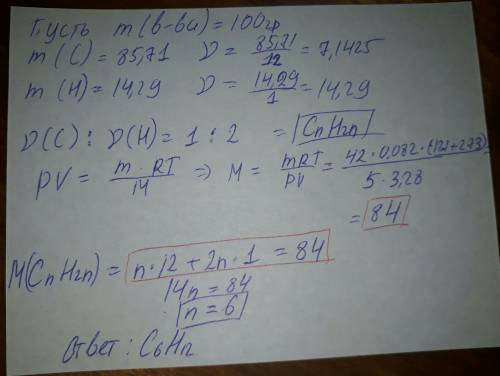 Пусть m(в-ва) = 100гр
m(C) = 85,71 ν = 85,71/12 = 7,1425
m(H) = 14,29 ν = 14,29/1 = 14,29
ν(C) : ν(H) = 1 : 2 = CnH2n
PV = m·RT/M => M = mRT/PV = 42·0,082·(127+273)/5·3,28
= 84
M(CnH2n) = n·12 + 2n·1 = 84
14n = 84
n = 6
ответ: C6H12